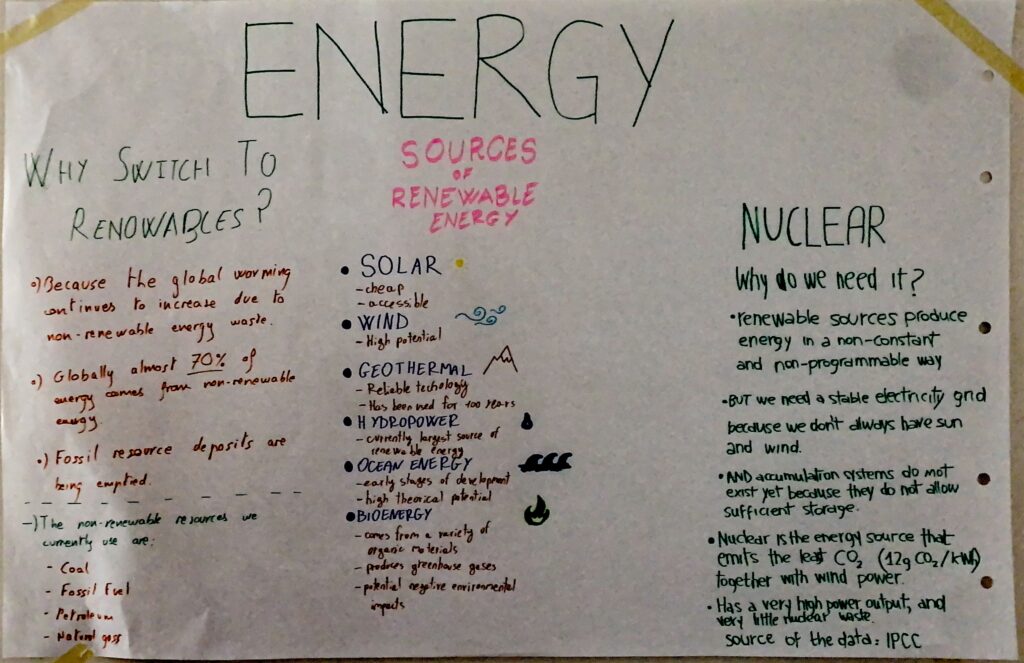 ENERGY
WHY SWITCH TO
RENOWABLES?
•) Because the global worming
continues to increase due to
non-renewable energy waste.
•) Globally almost 70% of
energy comes from non-renewable
energy.
•) Fossil resource deposits are
being emptied.
-) The non-renewable resources we
currently use are:
- Coal
- Fossil Fuel
- Petroleum
- Natural gass
SOURCES
OF
RENEWABLE
ENERGY
• SOLAR
- cheap
- accessible
• WIND
- High potential
• GEOTHERMAL
- Reliable techology
- Has been used for 100 years
• HYDROPOWER
- currently largest source of
renewable energy
• OCEAN ENERGY
- early stages of development
- high theorical potential
• BIOENERGY
- comes from a variety of
organic materials
- produces greenhouse gases
- potential negative environmental
impacts
NUCLEAR
Why do we need it?
• renewable sources produce
energy in a non-constant
and non-programmable way
• BUT we need a stable electricity grid
because we don't always have sun
and wind.
• AND accumulation systems do not
exist yet because they do not allow
sufficient storage.
• Nuclear is the energy source that
emits the least CO₂ (12g CO₂/kWh)
together with wind power.
• Has a very high power output, and
very little nuclear waste.
source of the data: IPCC